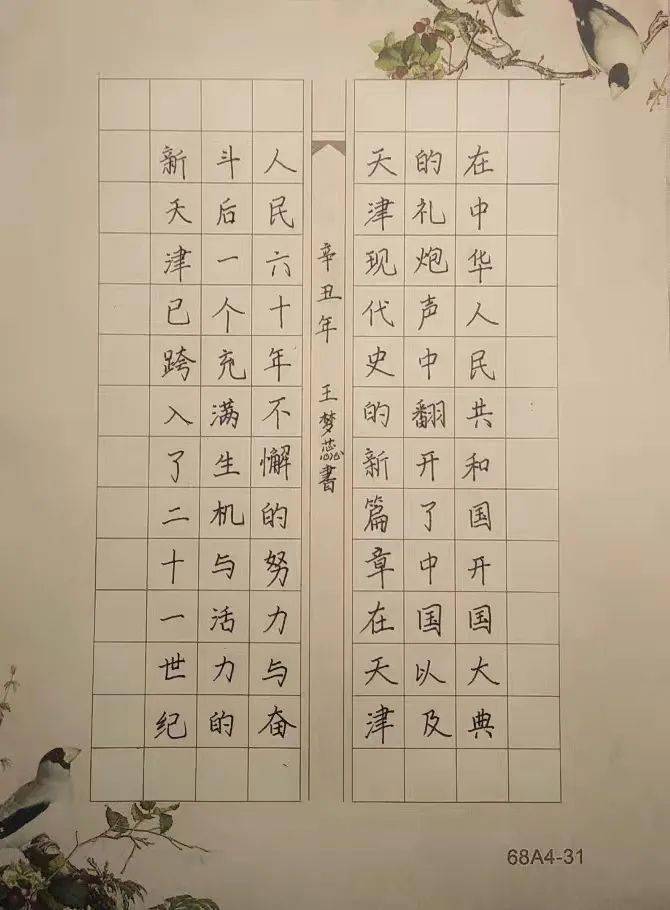 在中华人民共和国开国大典
的礼炮声中翻开了中国以及
天津现代史的新篇章在天津
人民六十年不懈的努力与奋
斗后一个充满生机与活力的
新天津已跨入了二十一世纪
辛丑年 王梦蕊書
68A4-31